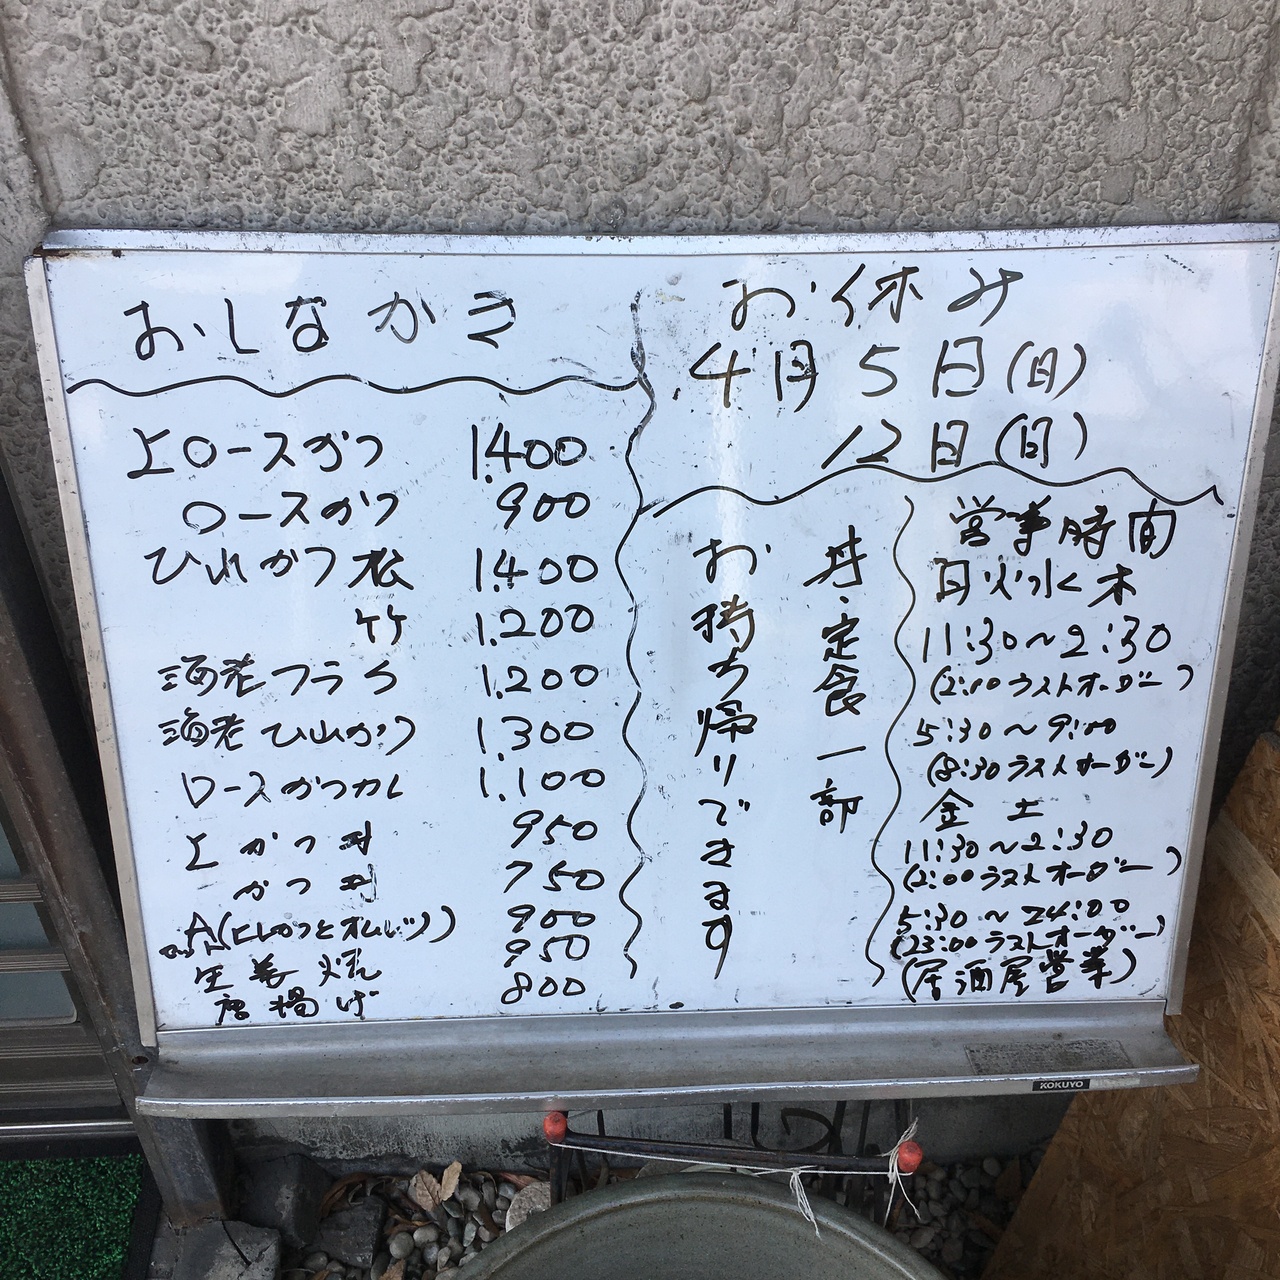 おしながき
上ロースかつ 1.400
ロースかつ 900
ひれかつ 松 1.400
竹 1.200
海老フライ 1.200
海老 ひれかつ 1.300
ロースかつカレ 1.100
上かつ丼 950
かつ丼 750
A(ヒレかつとオムレツ) 900
生姜焼 950
唐揚げ 800
お休み
4月5日(日)
12日(日)
丼・定食一部
お持ち帰りできます
営業時間
月火水木
11:30～2:30
(2:00ラストオーダー)
5:30～9:00
(8:30ラストオーダー)
金土
11:30～2:30
(2:00ラストオーダー)
5:30～24:00
(23:00ラストオーダー)
(居酒屋営業)
KOKUYO